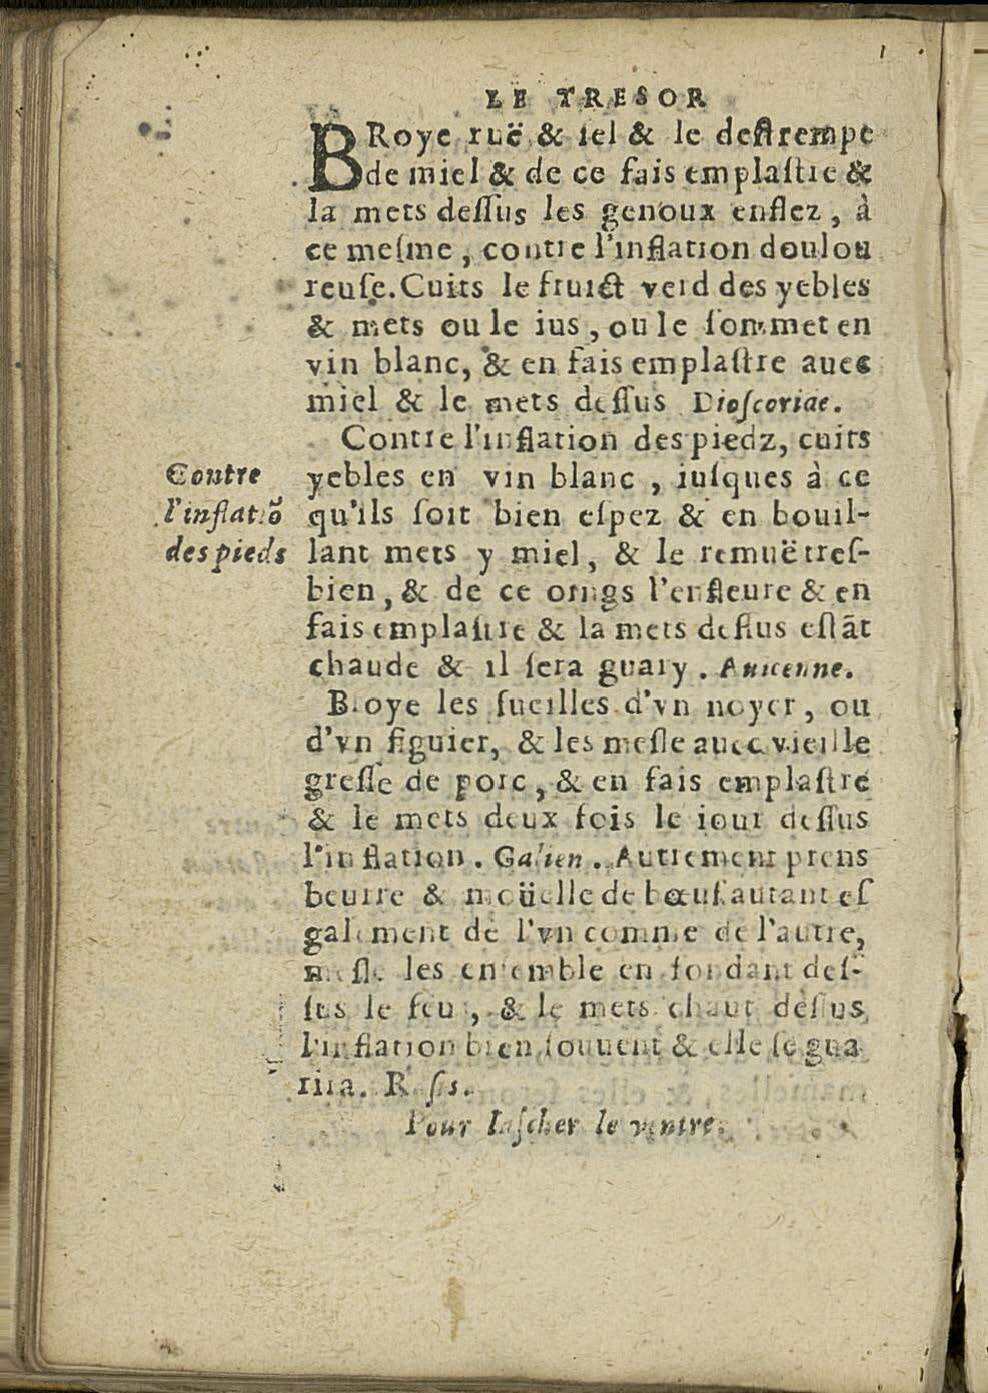 LE TRESOR
BRoye ruë & sel & le destrempe
de miel & de ce fais emplastre &
la mets dessus les genoux enflez, à
ce mesme, contre l'inflation doulou
reuse. Cuits le fruict verd des yebles
& mets ou le ius, ou le sommet en
vin blanc, & en fais emplastre auec
miel & le mets dessus Dioscoriae.
Contre l'inflation des piedz, cuits
Contre
l'inflatiõ
des pieds
yebles en vin blanc, iusques à ce
qu'ils soit bien espez & en bouil-
lant mets y miel, & le remuë tres-
bien, & de ce oings l'enfleure & en
fais emplastre & la mets dessus estãt
chaude & il sera guary. Auicenne.
Broye les fueilles d'vn noyer, ou
d'vn figuier, & les mesle auec vieille
gresse de porc, & en fais emplastre
& le mets deux fois le iour dessus
l'inflation. Galien. Autrement prens
beurre & moüelle de bœuf autant es
galement de l'vn comme de l'autre,
mesle les ensemble en fondant des-
sus le feu, & le mets chaut dessus
l'inflation bien souuent & elle se gua
rira. R sis.
Pour lascher le ventre.